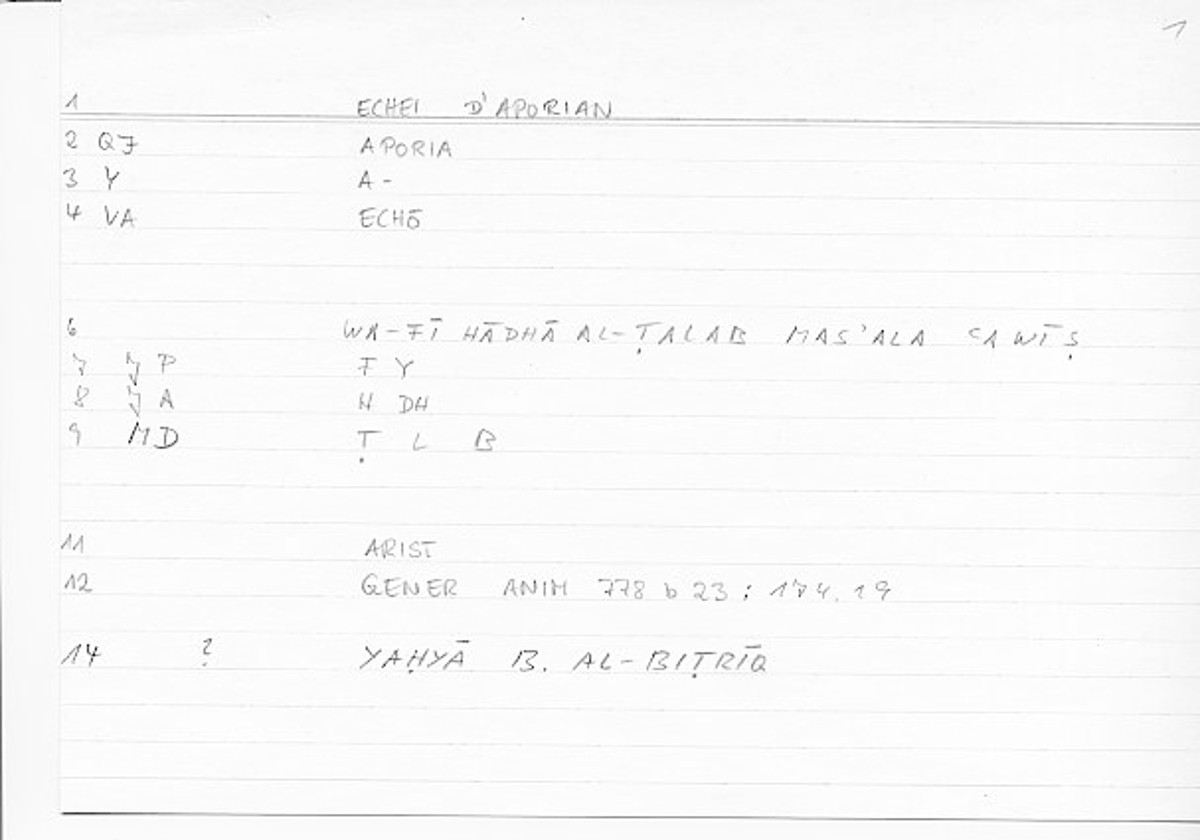 1
1 ECHEI D'APORIAN
2 QF APORIA
3 Y A-
4 VA ECHŌ
6 WA-FĪ HĀDHĀ AL-ṬALAB MAS'ALA ʿAWĪṢ
7 P F Y
8 A H DH
9 MD Ṭ L B
11 ARIST
12 GENER ANIM 778 b 23 : 174.19
14 ? YAḤYĀ B. AL-BIṬRĪQ